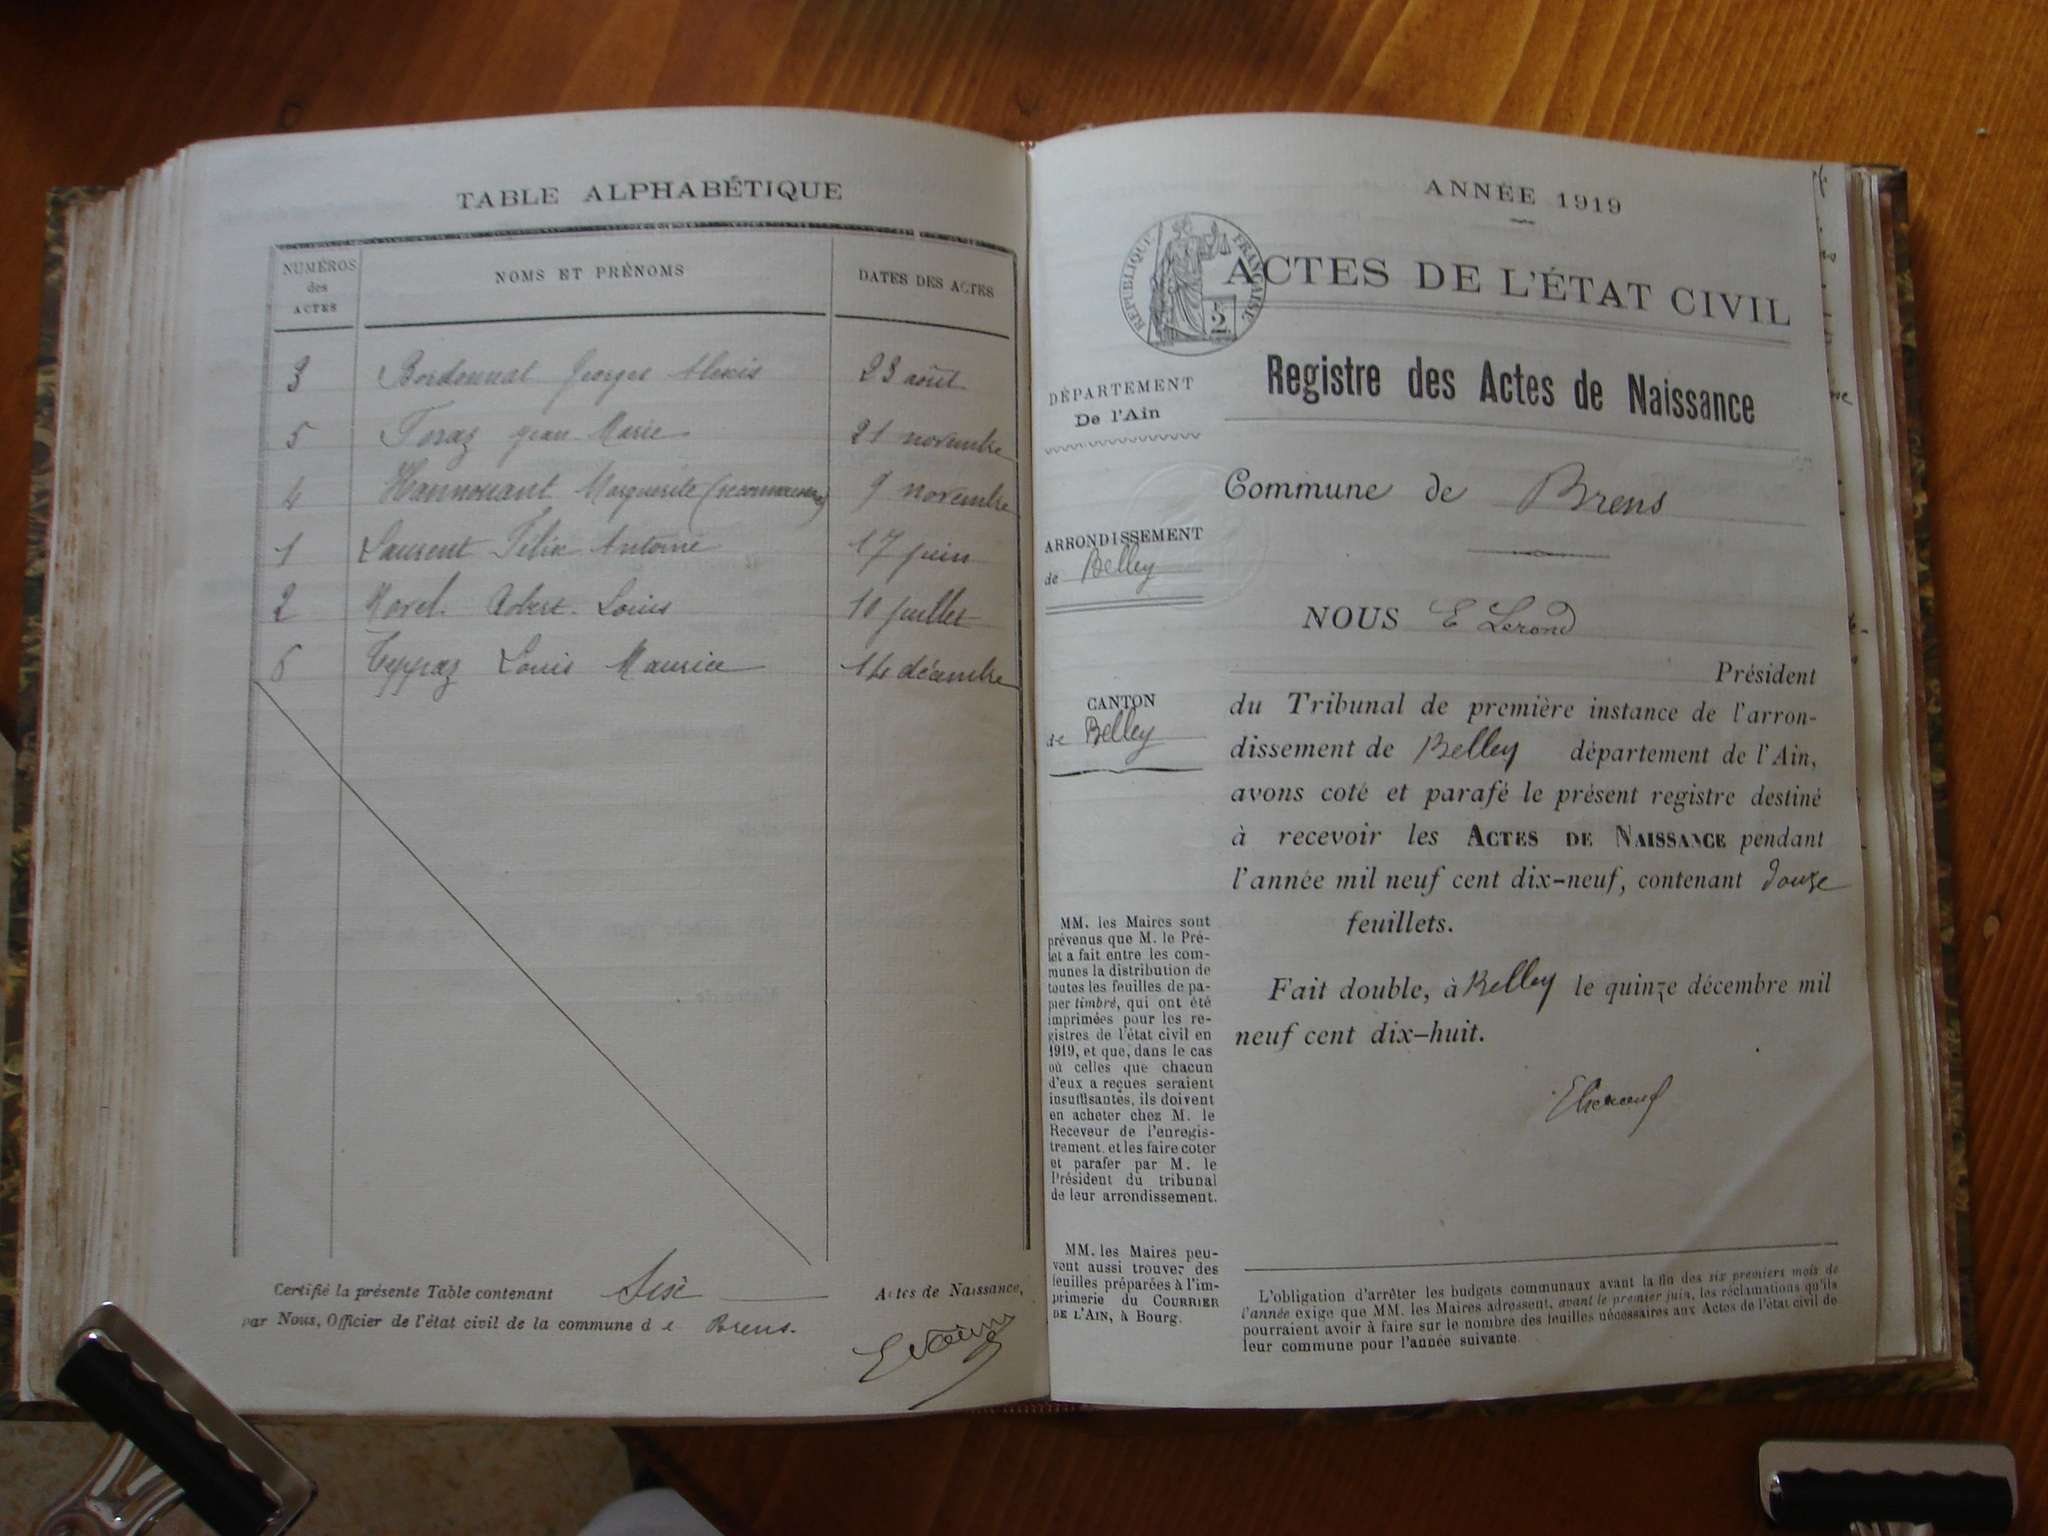 TABLE ALPHABÉTIQUE
NUMÉROS des ACTES NOMS ET PRÉNOMS DATES DES ACTES
3 Bordonnat Georges Alexis 23 août
5 Foraz Jean Marie 21 novembre
4 Marguerite 9 novembre
1 Laurent Félix Antoine 17 juin
2 Morel Robert Louis 10 juillet
6 Teppaz Louis Maurice 14 décembre
Certifié la présente Table contenant Six Actes de Naissance,
par Nous, Officier de l'état civil de la commune de Brens.
ANNÉE 1919
RÉPUBLIQUE FRANÇAISE
2
ACTES DE L'ÉTAT CIVIL
Registre des Actes de Naissance
DÉPARTEMENT
De l'Ain
Commune de Brens
ARRONDISSEMENT
de Belley
NOUS E Lerond
Président
CANTON
de Belley
du Tribunal de première instance de l'arron-
dissement de Belley département de l'Ain,
avons coté et parafé le présent registre destiné
à recevoir les ACTES DE NAISSANCE pendant
l'année mil neuf cent dix-neuf, contenant douze
feuillets.
Fait double, à Belley le quinze décembre mil
neuf cent dix-huit.
MM. les Maires sont
prévenus que M. le Pré-
fet a fait entre les com-
munes la distribution de
toutes les feuilles de pa-
pier timbré, qui ont été
imprimées pour les re-
gistres de l'état civil en
1919, et que, dans le cas
où celles que chacun
d'eux a reçues seraient
insuffisantes, ils doivent
en acheter chez M. le
Receveur de l'enregis-
trement, et les faire coter
et parafer par M. le
Président du tribunal
de leur arrondissement.
MM. les Maires peu-
vent aussi trouver des
feuilles préparées à l'im-
primerie du COURRIER
DE L'AIN, à Bourg.
L'obligation d'arrêter les budgets communaux avant la fin des six premiers mois de
l'année exige que MM. les Maires adressent, avant le premier juin, les réclamations qu'ils
pourraient avoir à faire sur le nombre des feuilles nécessaires aux Actes de l'état civil de
leur commune pour l'année suivante.